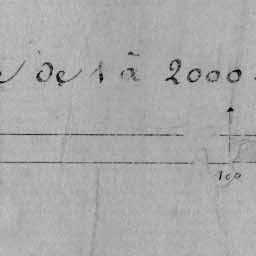 de 1 à 2000
100